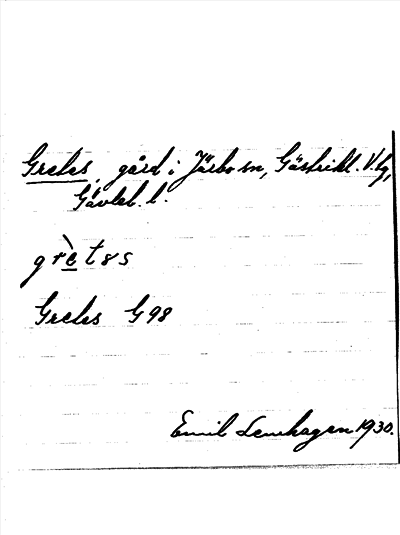 Gretes, gård i Järbo sn, Gästrikl. V. tg,
Gävleb. l.
grètəs
Gretes G 98
Emil Lenhagen 1930.